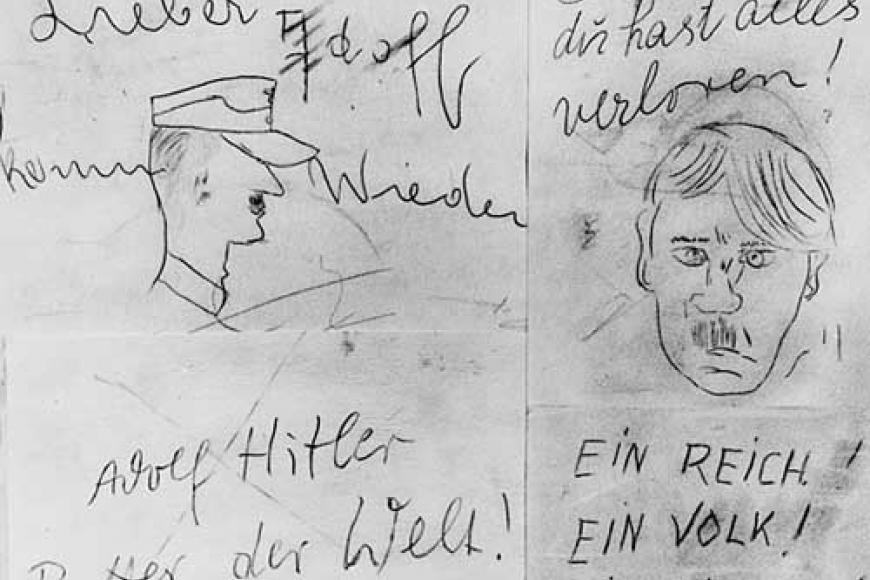 Lieber Adolf
komm Wieder
du hast alles
verloren!
Adolf Hitler
Retter der Welt!
EIN REICH!
EIN VOLK!